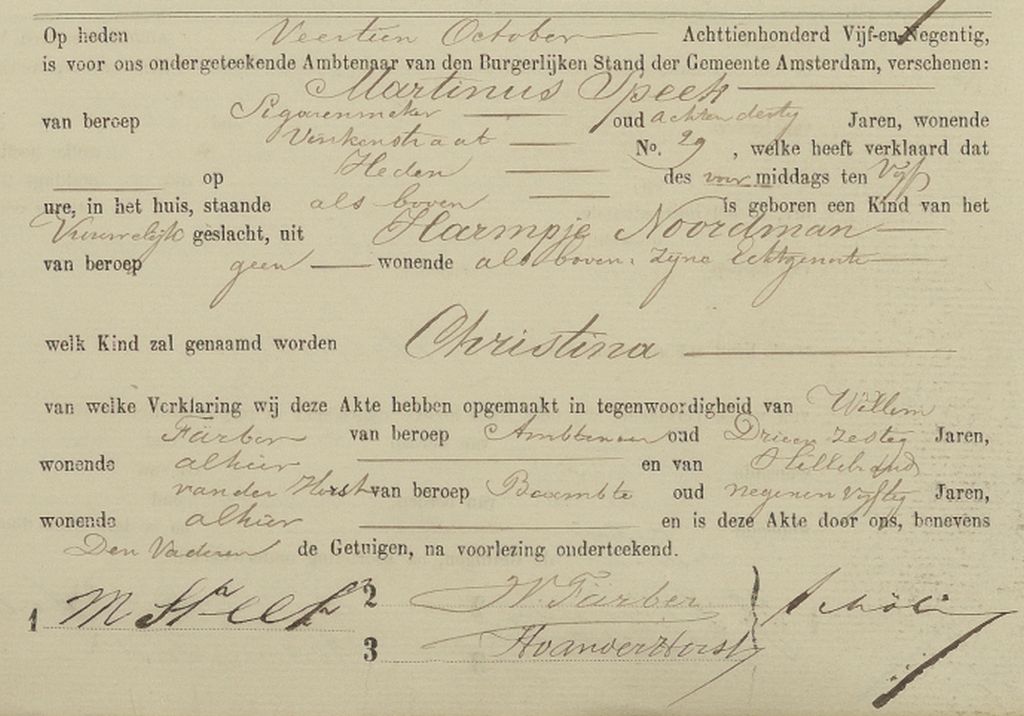 Op heden Veertien October Achttienhonderd Vijf-en-Negentig,
is voor ons ondergeteekende Ambtenaar van den Burgerlijken Stand der Gemeente Amsterdam, verschenen:
Martinus Speek
van beroep Sigarenmaker oud achtendertig Jaren, wonende
Vinkenstraat No. 29, welke heeft verklaard dat
op Heden des voor middags ten Vijf
ure, in het huis, staande als boven is geboren een Kind van het
Vrouwelijk geslacht, uit Harmpje Noordman
van beroep geen wonende als boven, Zijne Echtgenoote
welk Kind zal genaamd worden Christina
van welke Verklaring wij deze Akte hebben opgemaakt in tegenwoordigheid van Willem
Färber van beroep Ambtenaar oud Drieenzestig Jaren,
wonende alhier en van Hillebrand
van der Horst van beroep Beambte oud negenenvijftig Jaren,
wonende alhier en is deze Akte door ons, benevens
Den Vader en de Getuigen, na voorlezing onderteekend.
1 M 2 W. Färber
3 H van der Horst